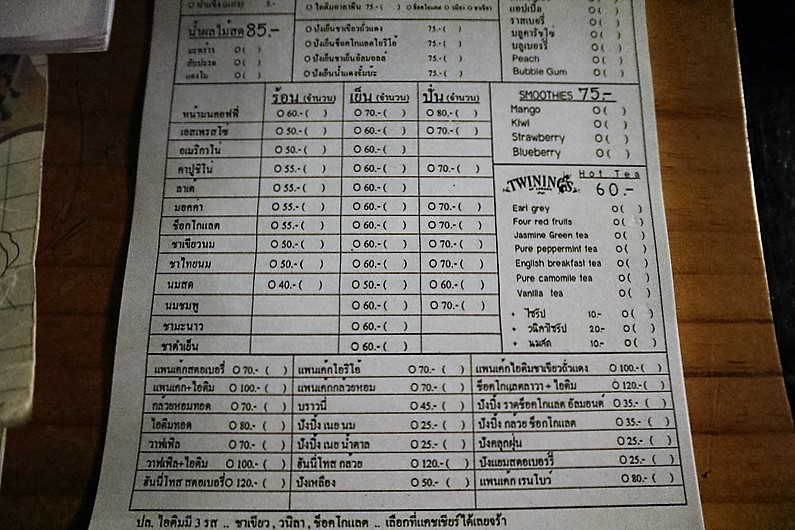 น้ำผลไม้สด 85.-
มะพร้าว O( )
สับปะรด O( )
แตงโม O( )
ไอติมอาลาคีน 75.- ( ) O ช็อคโกแลต O วนิลา O ชาเขียว
O ปังเย็นชาเขียวถั่วแดง 75.-( )
O ปังเย็นช็อคโกแลตโอริโอ้ 75.-( )
O ปังเย็นชาเย็นอัลมอลล์ 75.-( )
O ปังเย็นน้ำแดงจั้มบ๊ะ 75.-( )
แอปเปิ้ล O( )
ราสเบอรี่ O( )
บลูคาร์ซูโซ่ O( )
บลูเบอรรี่ O( )
Peach O( )
Bubble Gum O( )
ร้อน (จำนวน) เย็น (จำนวน) ปั่น (จำนวน)
หน้ามนคอฟฟี่ O 60.-( ) O 70.-( ) O 80.-( )
เอสเพรสโซ่ O 50.-( ) O 60.-( ) O 70.-( )
อเมริกาโน่ O 50.-( ) O 60.-( )
คาปูชิโน่ O 55.-( ) O 60.-( ) O 70.-( )
ลาเต้ O 55.-( ) O 60.-( )
มอคคา O 55.-( ) O 60.-( ) O 70.-( )
ช็อกโกแลต O 55.-( ) O 60.-( ) O 70.-( )
ชาเขียวนม O 50.-( ) O 60.-( ) O 70.-( )
ชาไทยนม O 50.-( ) O 60.-( ) O 70.-( )
นมสด O 40.-( ) O 50.-( ) O 60.-( )
นมชมพู O 60.-( ) O 70.-( )
ชามะนาว O 60.-( )
ชาดำเย็น O 60.-( )
SMOOTHIES 75.-
Mango O( )
Kiwi O( )
Strawberry O( )
Blueberry O( )
TWININGS Hot Tea
60.-
Earl grey O( )
Four red fruits O( )
Jasmine Green tea O( )
Pure peppermint tea O( )
English breakfast tea O( )
Pure camomile tea O( )
Vanilla tea O( )
+ ไซรัป 10.- O( )
+ วนิลาไซรัป 20.- O( )
+ นมสด 10.- O( )
แพนเค้กสตอเบอรี่ O 70.- ( ) แพนเค้กโอริโอ้ O 70.- ( ) แพนเค้กไอติมชาเขียวถั่วแดง O 100.- ( )
แพนเค้ก+ไอติม O 100.- ( ) แพนเค้กกล้วยหอม O 70.- ( ) ช็อกโกแลตลาวา + ไอติม O 120.- ( )
กล้วยหอมทอด O 70.- ( ) บราวนี่ O 45.- ( ) ปังปิ้ง ราดช็อคโกแลต อัลมอนด์ O 35.- ( )
ไอติมทอด O 80.- ( ) ปังปิ้ง เนย นม O 25.- ( ) ปังปิ้ง กล้วย ช็อกโกแลต O 35.- ( )
วาฟเฟิล O 70.- ( ) ปังปิ้ง เนย น้ำตาล O 25.- ( ) ปังคลุกฝุ่น O 25.- ( )
วาฟเฟิล+ไอติม O 100.- ( ) ฮันนี่โทส กล้วย O 120.- ( ) ปังแยมสตอเบอร์รี่ O 25.- ( )
ฮันนี่โทส สตอเบอรี่ O 120.- ( ) ปังเหลือง O 50.- ( ) แพนเค้ก เรนโบว์ O 80.- ( )
ปล. ไอติมมี 3 รส .. ชาเขียว , วนิลา , ช็อคโกแลต .. เลือกที่แคชเชียร์ได้เลยจร้า